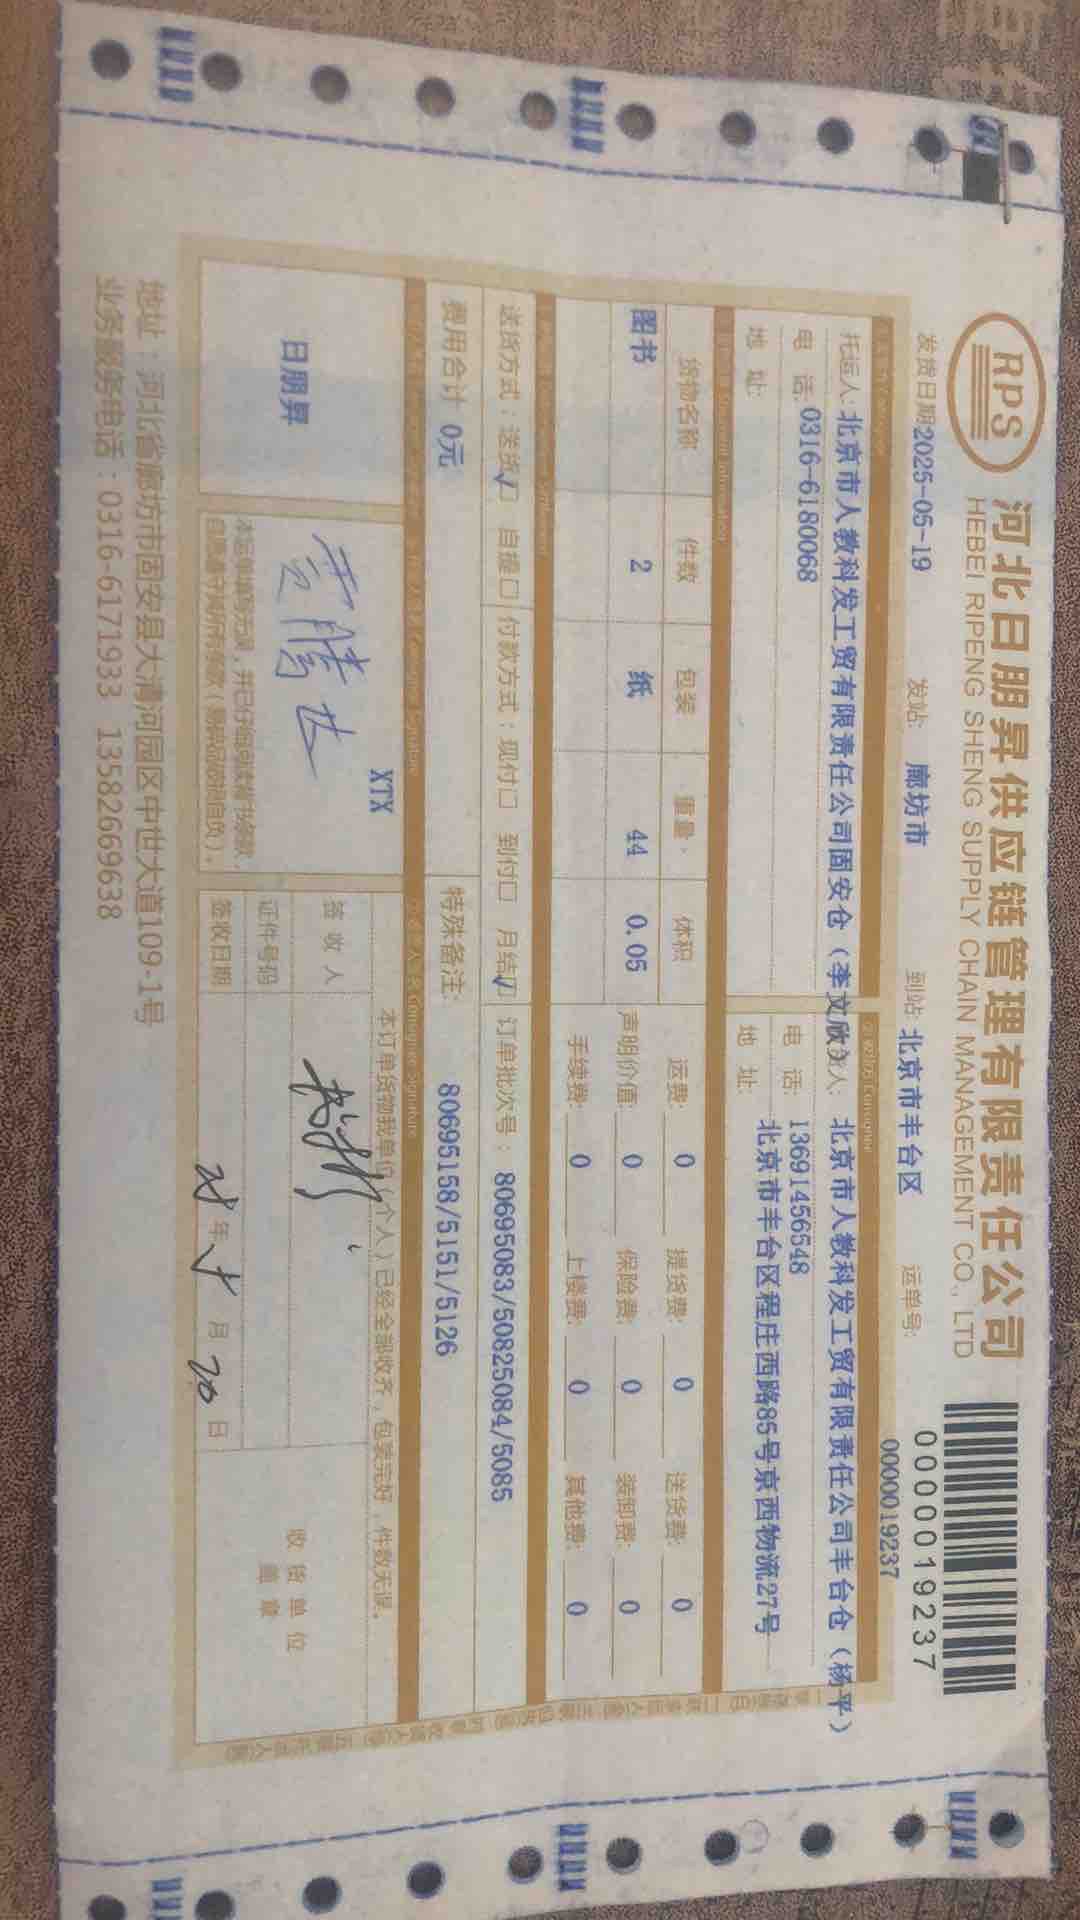 RPS
河北日朋昇供应链管理有限责任公司
HEBEI RIPENG SHENG SUPPLY CHAIN MANAGEMENT CO., LTD
0000019237
0000019237
发货日期:2025-05-19 发站: 廊坊市 到站: 北京市丰台区 运单号:
托运人: 北京市人教科发工贸有限责任公司固安仓（李文欣） 北京市人教科发工贸有限责任公司丰台仓（杨平）
电 话: 0316-6180068
电 话: 13691456548
地 址:
地 址: 北京市丰台区程庄西路85号京西物流27号
货物名称 件数 包装 重量 体积
图书 2 纸 44 0.05
运费: 0 提货费: 0 送货费: 0
声明价值: 0 保险费: 0 装卸费: 0
手续费: 0 上楼费: 0 其他费: 0
送货方式：送货√□ 自提□ 付款方式：现付□ 到付□ 月结√□ 订单批次号：80695083/50825084/5085
费用合计 0元
特殊备注: 80695158/5151/5126
日朋昇
XTX
本运单填写无误，并已仔细阅读背书条款，
本订单货物我单位(个人)已经全部收齐，包装完好，件数无误。
签收人
证件号码
签收日期 25年5月20日
收货单位
盖章
地址：河北省廊坊市固安县大清河园区中世大道109-1号
业务服务电话：0316-6171933 13582669638